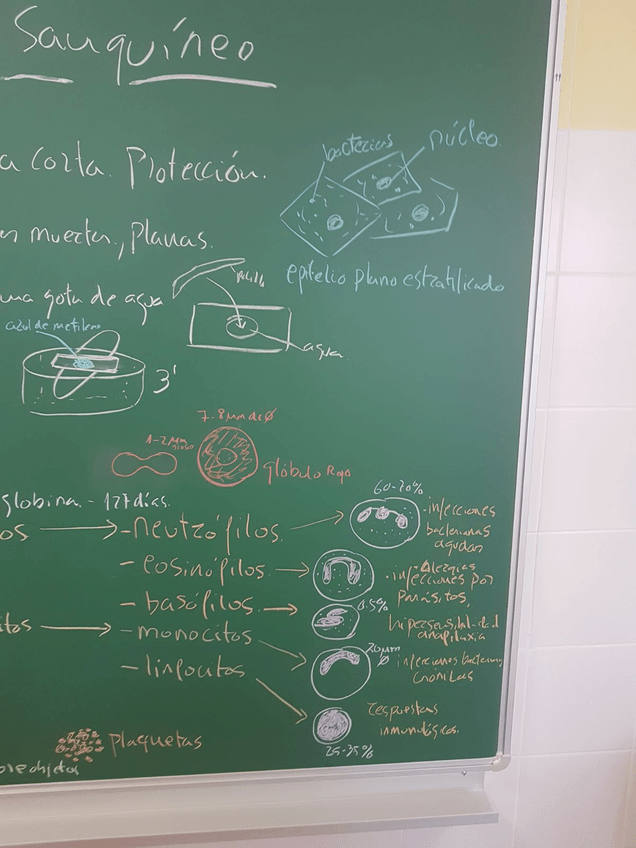 Sanguíneo
bacterias
núcleo.
a corta. Protección.
muertas, planas.
epitelio plano estratificado
una gota de agua
palillo
azul de metileno
agua
3'
7-8 µm de Ø
1-2 µm
grosor
glóbulo Rojo
globina. - 127 días.
60-70%
os → - neutrófilos.
- infecciones
bacterianas
agudas
- eosinófilos →
- Alergias
• infecciones por
parásitos,
- basófilos. →
0.5%
hipersensibilidad
anafilaxia
itos → - monocitos
20 µm
Ø
infecciones bacterianas
crónicas
- linfocitos
respuestas
inmunológicas.
25-35%
plaquetas
objetos